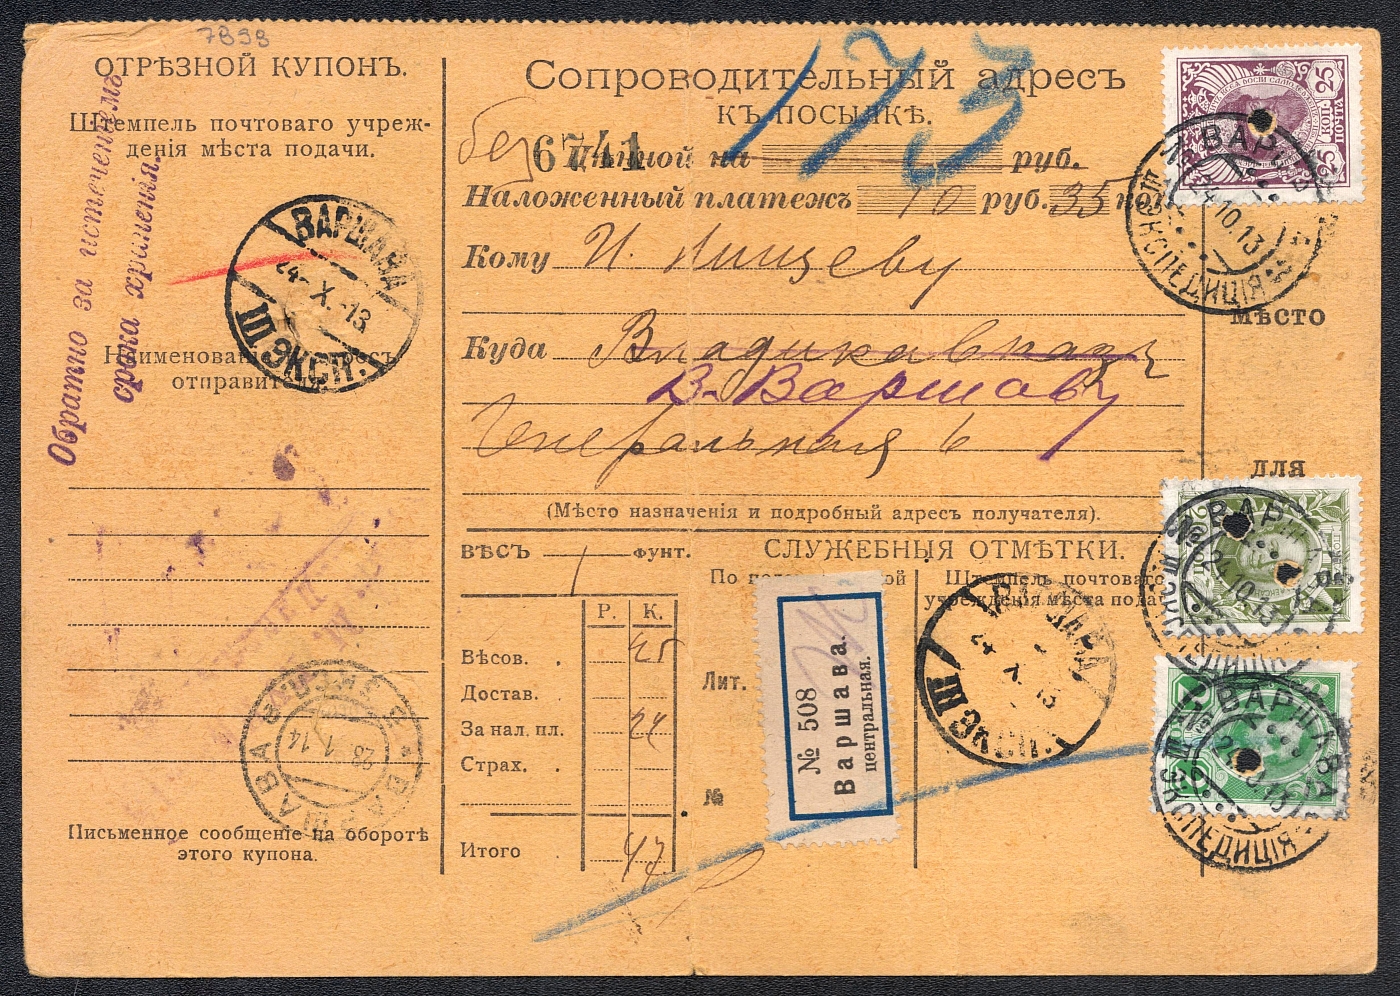 7898
ОТРѢЗНОЙ КУПОНЪ.
Штемпель почтоваго учреж-
денія мѣста подачи.
Обратно за истеченіемъ
срока храненія.
ВАРШАВА
24 - X - 13
III ЭКСП.
Наименованіе адресъ
отправит
ВАРШАВА
28 1 14
ВАРШАВА
Письменное сообщеніе на оборотѣ
этого купона.
Сопроводительный адресъ
КЪ ПОСЫЛКѢ.
173
без
6741
Цѣнной на руб.
Наложенный платежъ 10 руб. 35 коп
Кому И. Нищеву
Куда Владикавказъ
В. Варшаву
Генеральная 6
(Мѣсто назначенія и подробный адресъ получателя).
ВѢСЪ 1 ФУНТ.
СЛУЖЕБНЫЯ ОТМѢТКИ.
Р. К.
Вѣсов. . 
Достав. .
За нал. пл.
Страх. .
Итого . 47
По ной
Лит.
№
№ 508
Варшава.
центральная.
Штемпель почтоваго
учрежденія мѣста пода
ВАРШАВА
24 X 13
III ЭКСП.
25 КОП. 25
ПОЧТА
ВАРШАВА
24.10.13
ЭКСПЕДИЦІЯ
МѢСТО
ДЛЯ
ВАРШАВА
24.10.13
ЭКСПЕДИЦІЯ
ВАРШАВА
ЭКСПЕДИЦІЯ